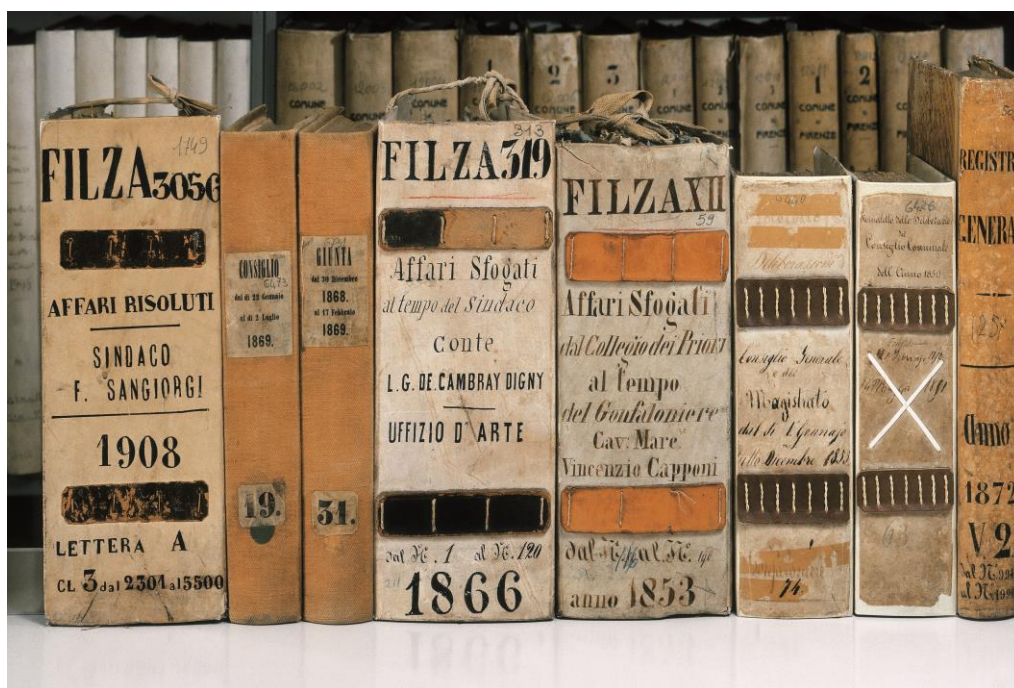 1749
FILZA 3056
AFFARI RISOLUTI
SINDACO
F. SANGIORGI
1908
LETTERA A
CL. 3 dal 2301 al 5500
CONSIGLIO
6473
dal dì 29 Gennaio
al dì 2 Luglio
1869.
19.
GIUNTA
dal 30 Dicembre
1868.
al 17 Febbraio
1869.
31.
313
FILZA 319
Affari Sfogati
al tempo del Sindaco
Conte
L.G. DE. CAMBRAY DIGNY
UFFIZIO D'ARTE
dal N. 1 al N. 120
1866
FILZA XII
59
Affari Sfogati
dal Collegio dei Priori
al Tempo
del Gonfaloniere
Cav: Marc.
Vincenzio Capponi
dal N. al N.
anno 1853
Deliberazioni
Consiglio Generale
e del
Magistrato
dal dì 1 Gennajo
Dicembre
14.
6426
delle Deliberazioni
del
Consiglio Comunale
dell'Anno
63
REGISTR
GENERA
25
Anno
1872
V. 2
dal N.
al N.
COMUNE
COMUNE
COMUNE
COMUNE
1
2
COMUNE
3
COMUNE
COMUNE
COMUNE
COMUNE
1
COMUNE
DI
FIRENZE
2
COMUNE
DI
FIRENZE